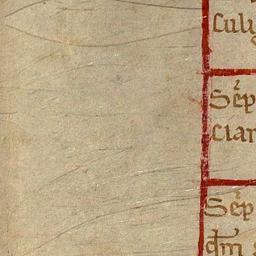 culi
Sep
ciar
Sep
dm